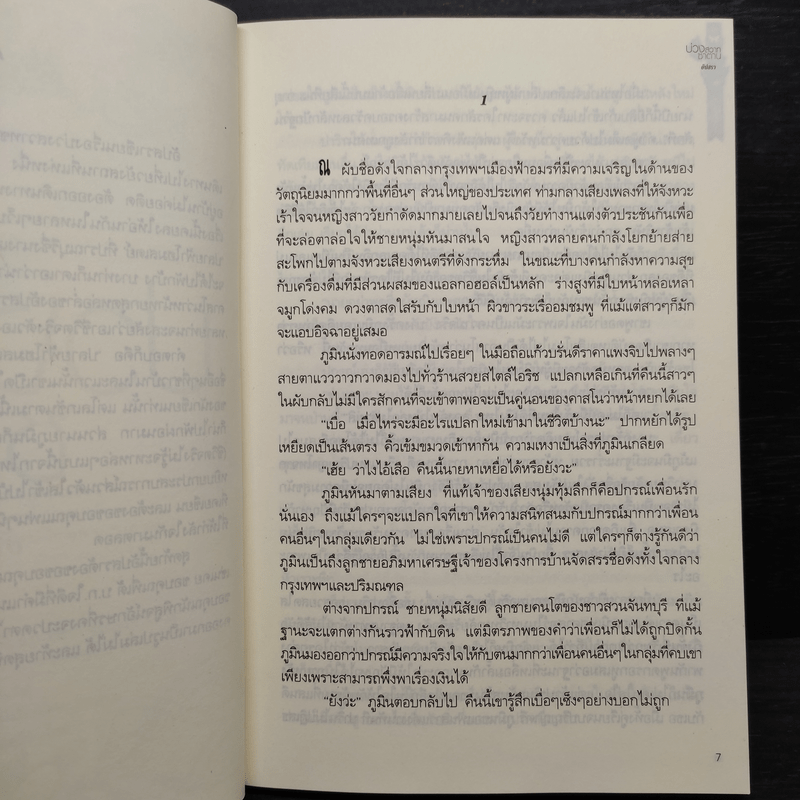 บ่วงสวาท
ซาตาน
อัปสรา
1
ณ ผับชื่อดังใจกลางกรุงเทพฯเมืองฟ้าอมรที่มีความเจริญในด้านของ
วัตถุนิยมมากกว่าพื้นที่อื่นๆ ส่วนใหญ่ของประเทศ ท่ามกลางเสียงเพลงที่ให้จังหวะ
เร้าใจจนหญิงสาววัยกำดัดมากมายเลยไปจนถึงวัยทำงานแต่งตัวประชันกันเพื่อ
ที่จะล่อตาล่อใจให้ชายหนุ่มหันมาสนใจ หญิงสาวหลายคนกำลังโยกย้ายส่าย
สะโพกไปตามจังหวะเสียงดนตรีที่ดังกระหึ่ม ในขณะที่บางคนกำลังหาความสุข
กับเครื่องดื่มที่มีส่วนผสมของแอลกอฮอล์เป็นหลัก ร่างสูงที่มีใบหน้าหล่อเหลา
จมูกโด่งคม ดวงตาสดใสรับกับใบหน้า ผิวขาวระเรื่ออมชมพู ที่แม้แต่สาวๆก็มัก
จะแอบอิจฉาอยู่เสมอ
ภูมินนั่งทอดอารมณ์ไปเรื่อยๆ ในมือถือแก้วบรั่นดีราคาแพงจิบไปพลางๆ
สายตาแวววาวกวาดมองไปทั่วร้านสวยสไตล์ไอริช แปลกเหลือเกินที่คืนนี้สาวๆ
ในผับกลับไม่มีใครสักคนที่จะเข้าตาพอจะเป็นคู่นอนของคาสโนว่าหน้าหยกได้เลย
"เบื่อ เมื่อไหร่จะมีอะไรแปลกใหม่เข้ามาในชีวิตบ้างนะ" ปากหยักได้รูป
เหยียดเป็นเส้นตรง คิ้วเข้มขมวดเข้าหากัน ความเหงาเป็นสิ่งที่ภูมินเกลียด
"เฮ้ย ว่าไงไอ้เสือ คืนนี้นายหาเหยื่อได้หรือยังวะ"
ภูมินหันมาตามเสียง ที่แท้เจ้าของเสียงนุ่มทุ้มลึกก็คือปกรณ์เพื่อนรัก
นั่นเอง ถึงแม้ใครๆจะแปลกใจที่เขาให้ความสนิทสนมกับปกรณ์มากกว่าเพื่อน
คนอื่นๆในกลุ่มเดียวกัน ไม่ใช่เพราะปกรณ์เป็นคนไม่ดี แต่ใครๆก็ต่างรู้กันดีว่า
ภูมินเป็นถึงลูกชายอภิมหาเศรษฐีเจ้าของโครงการบ้านจัดสรรชื่อดังทั้งใจกลาง
กรุงเทพฯและปริมณฑล
ต่างจากปกรณ์ ชายหนุ่มนิสัยดี ลูกชายคนโตของชาวสวนจันทบุรี ที่แม้
ฐานะจะแตกต่างกันราวฟ้ากับดิน แต่มิตรภาพของคำว่าเพื่อนก็ไม่ได้ถูกปิดกั้น
ภูมินมองออกว่าปกรณ์มีความจริงใจให้กับตนมากกว่าเพื่อนคนอื่นๆในกลุ่มที่คบเขา
เพียงเพราะสามารถพึ่งพาเรื่องเงินได้
"ยังว่ะ" ภูมินตอบกลับไป คืนนี้เขารู้สึกเบื่อๆเซ็งๆอย่างบอกไม่ถูก
7